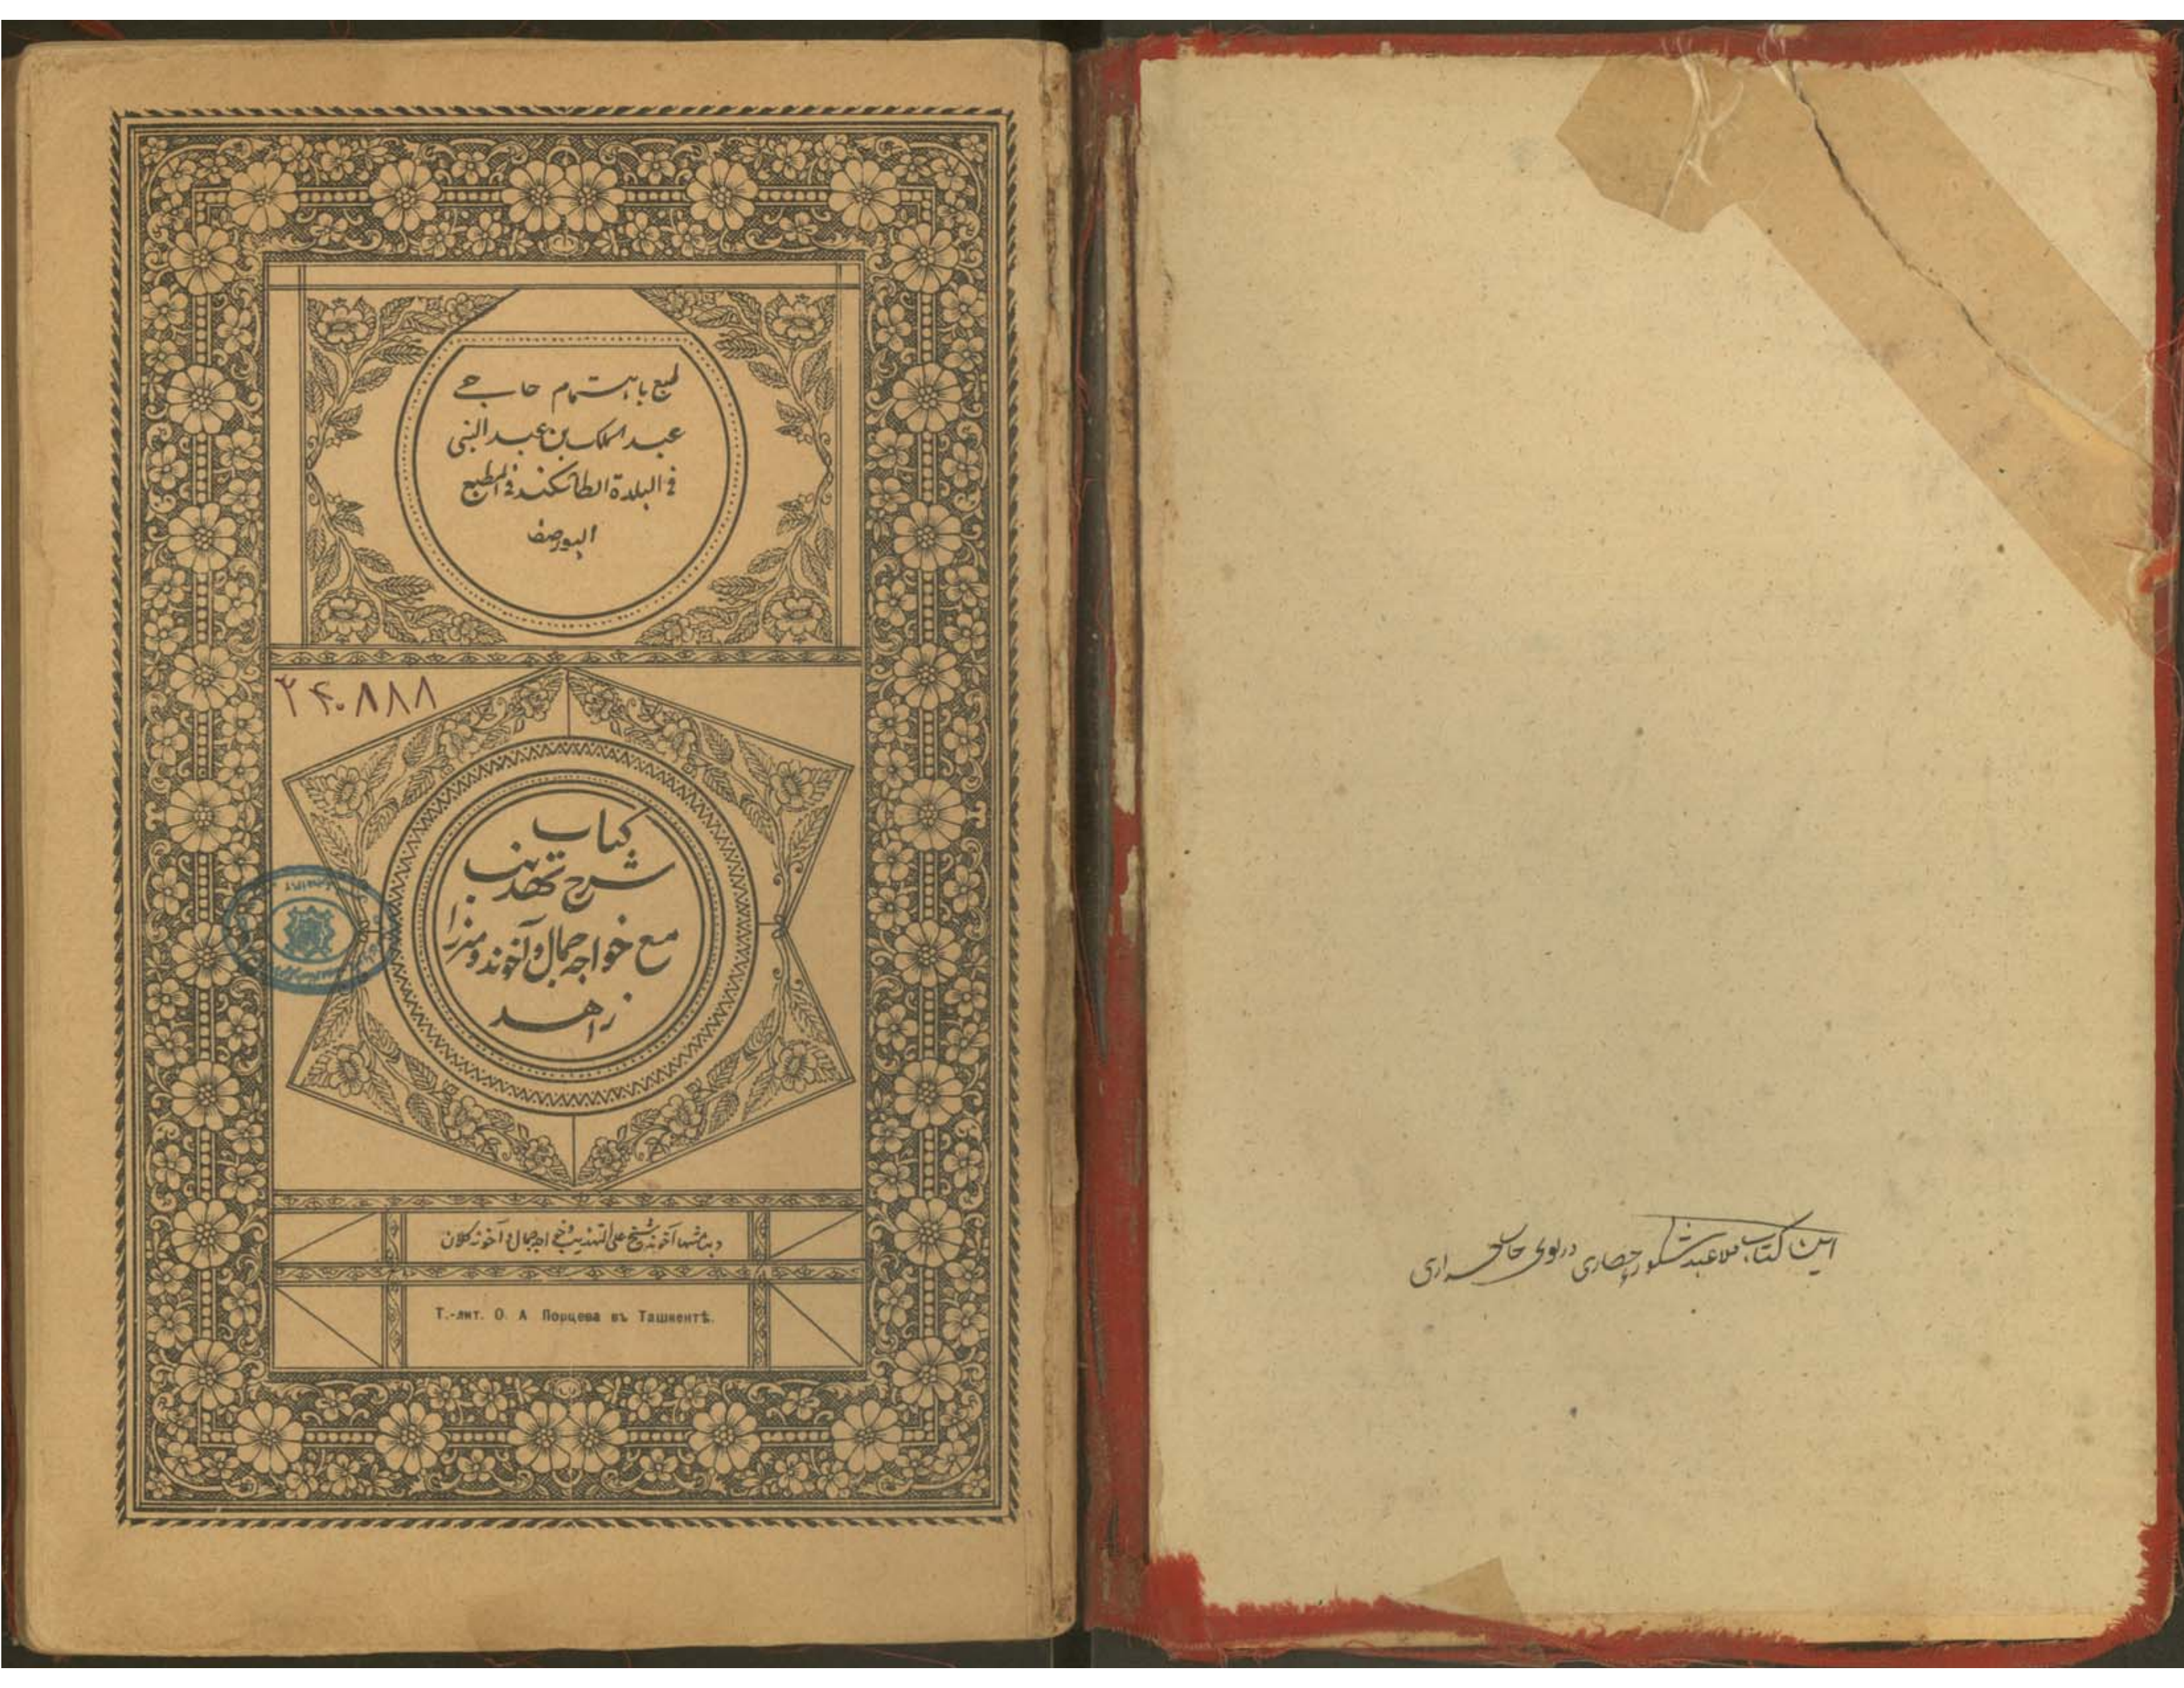 طبع باهتمام حاجے
عبد الملک بن عبد النبی
فے البلدة الطاشکند فے المطبع
البورصف
۲۴۰۸۸۸
کتاب
شرح تهذیب
مع خواجه جمال و آخوند و میرزا
زاهد
آخوند شیخ علی التهذیب و خواجه جمال و آخوند کلان
Т.-лит. О. А Порцева въ Ташкентѣ.
این کتاب ملا عبد شکور حصاری